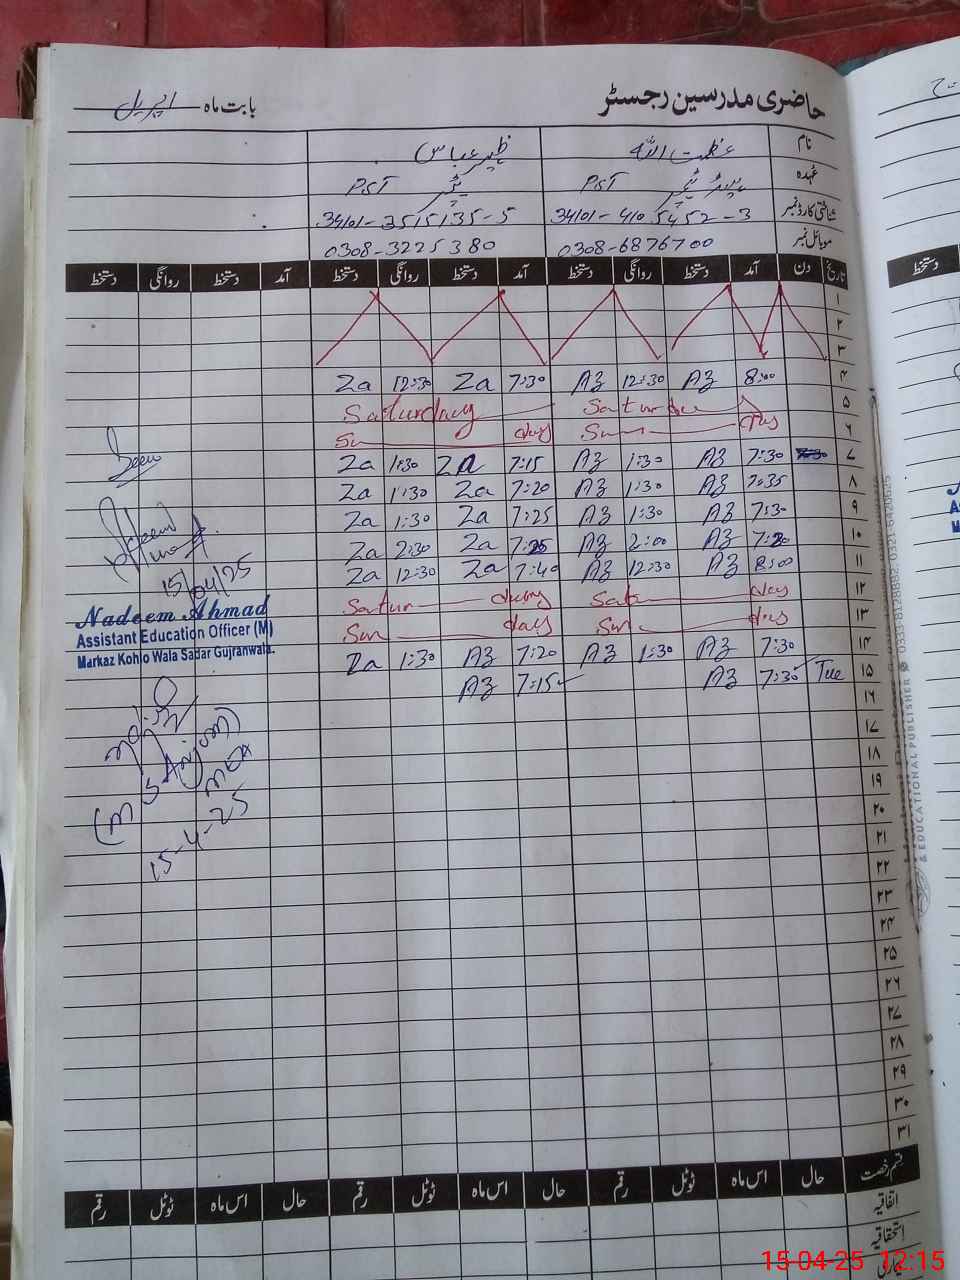 حاضری مدرسین رجسٹر بابت ماہ اپریل
نام عظمت اللہ ظہیر عباس
عہدہ PST PST
شناختی کارڈ نمبر 34101-4105452-3 34101-3515135-5
موبائل نمبر 0308-6876700 0308-3225380
تاریخ دن آمد دستخط روانگی دستخط آمد دستخط روانگی دستخط آمد دستخط روانگی دستخط
۱
۲
۳
۴ 8:00 AZ 12:30 AZ 7:30 Za 12:30 Za
۵ Saturday Saturday
۶ Sun day Sun day
۷ 7:30 AZ 1:30 AZ 7:15 Za 1:30 Za
۸ 7:35 AZ 1:30 AZ 7:20 Za 1:30 Za
۹ 7:30 AZ 1:30 AZ 7:25 Za 1:30 Za
۱۰ 7:20 AZ 2:00 AZ 7:25 Za 2:30 Za
۱۱ 8:00 AZ 12:30 AZ 7:40 Za 12:30 Za
۱۲ Satu day Satur day
۱۳ Sun day Sun day
۱۴ 7:30 AZ 1:30 AZ 7:20 AZ 1:30 Za
۱۵ Tue 7:30 AZ 7:15 AZ
۱۶
۱۷
۱۸
۱۹
۲۰
۲۱
۲۲
۲۳
۲۴
۲۵
۲۶
۲۷
۲۸
۲۹
۳۰
۳۱
15/04/25
Nadeem Ahmad
Assistant Education Officer (M)
Markaz Kohlo Wala Sadar Gujranwala.
(M S Anjum)
MEA
15-4-25
& EDUCATIONAL PUBLISHER 0333-8128882, 0321-6420625
قسم رخصت حال اس ماہ ٹوٹل رقم حال اس ماہ ٹوٹل رقم حال اس ماہ ٹوٹل رقم
اتفاقیہ
استحقاقیہ
دستخط
15-04-25 12:15